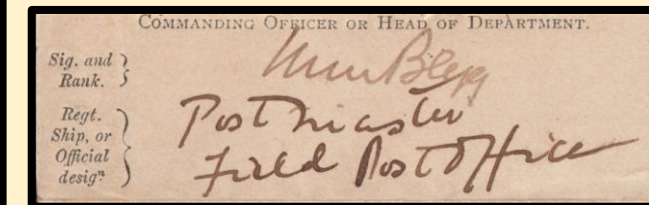 COMMANDING OFFICER OR HEAD OF DEPARTMENT.
Sig. and
Rank.
Regt.
Ship, or
Official
desigⁿ
Postmaster
Field Post Office